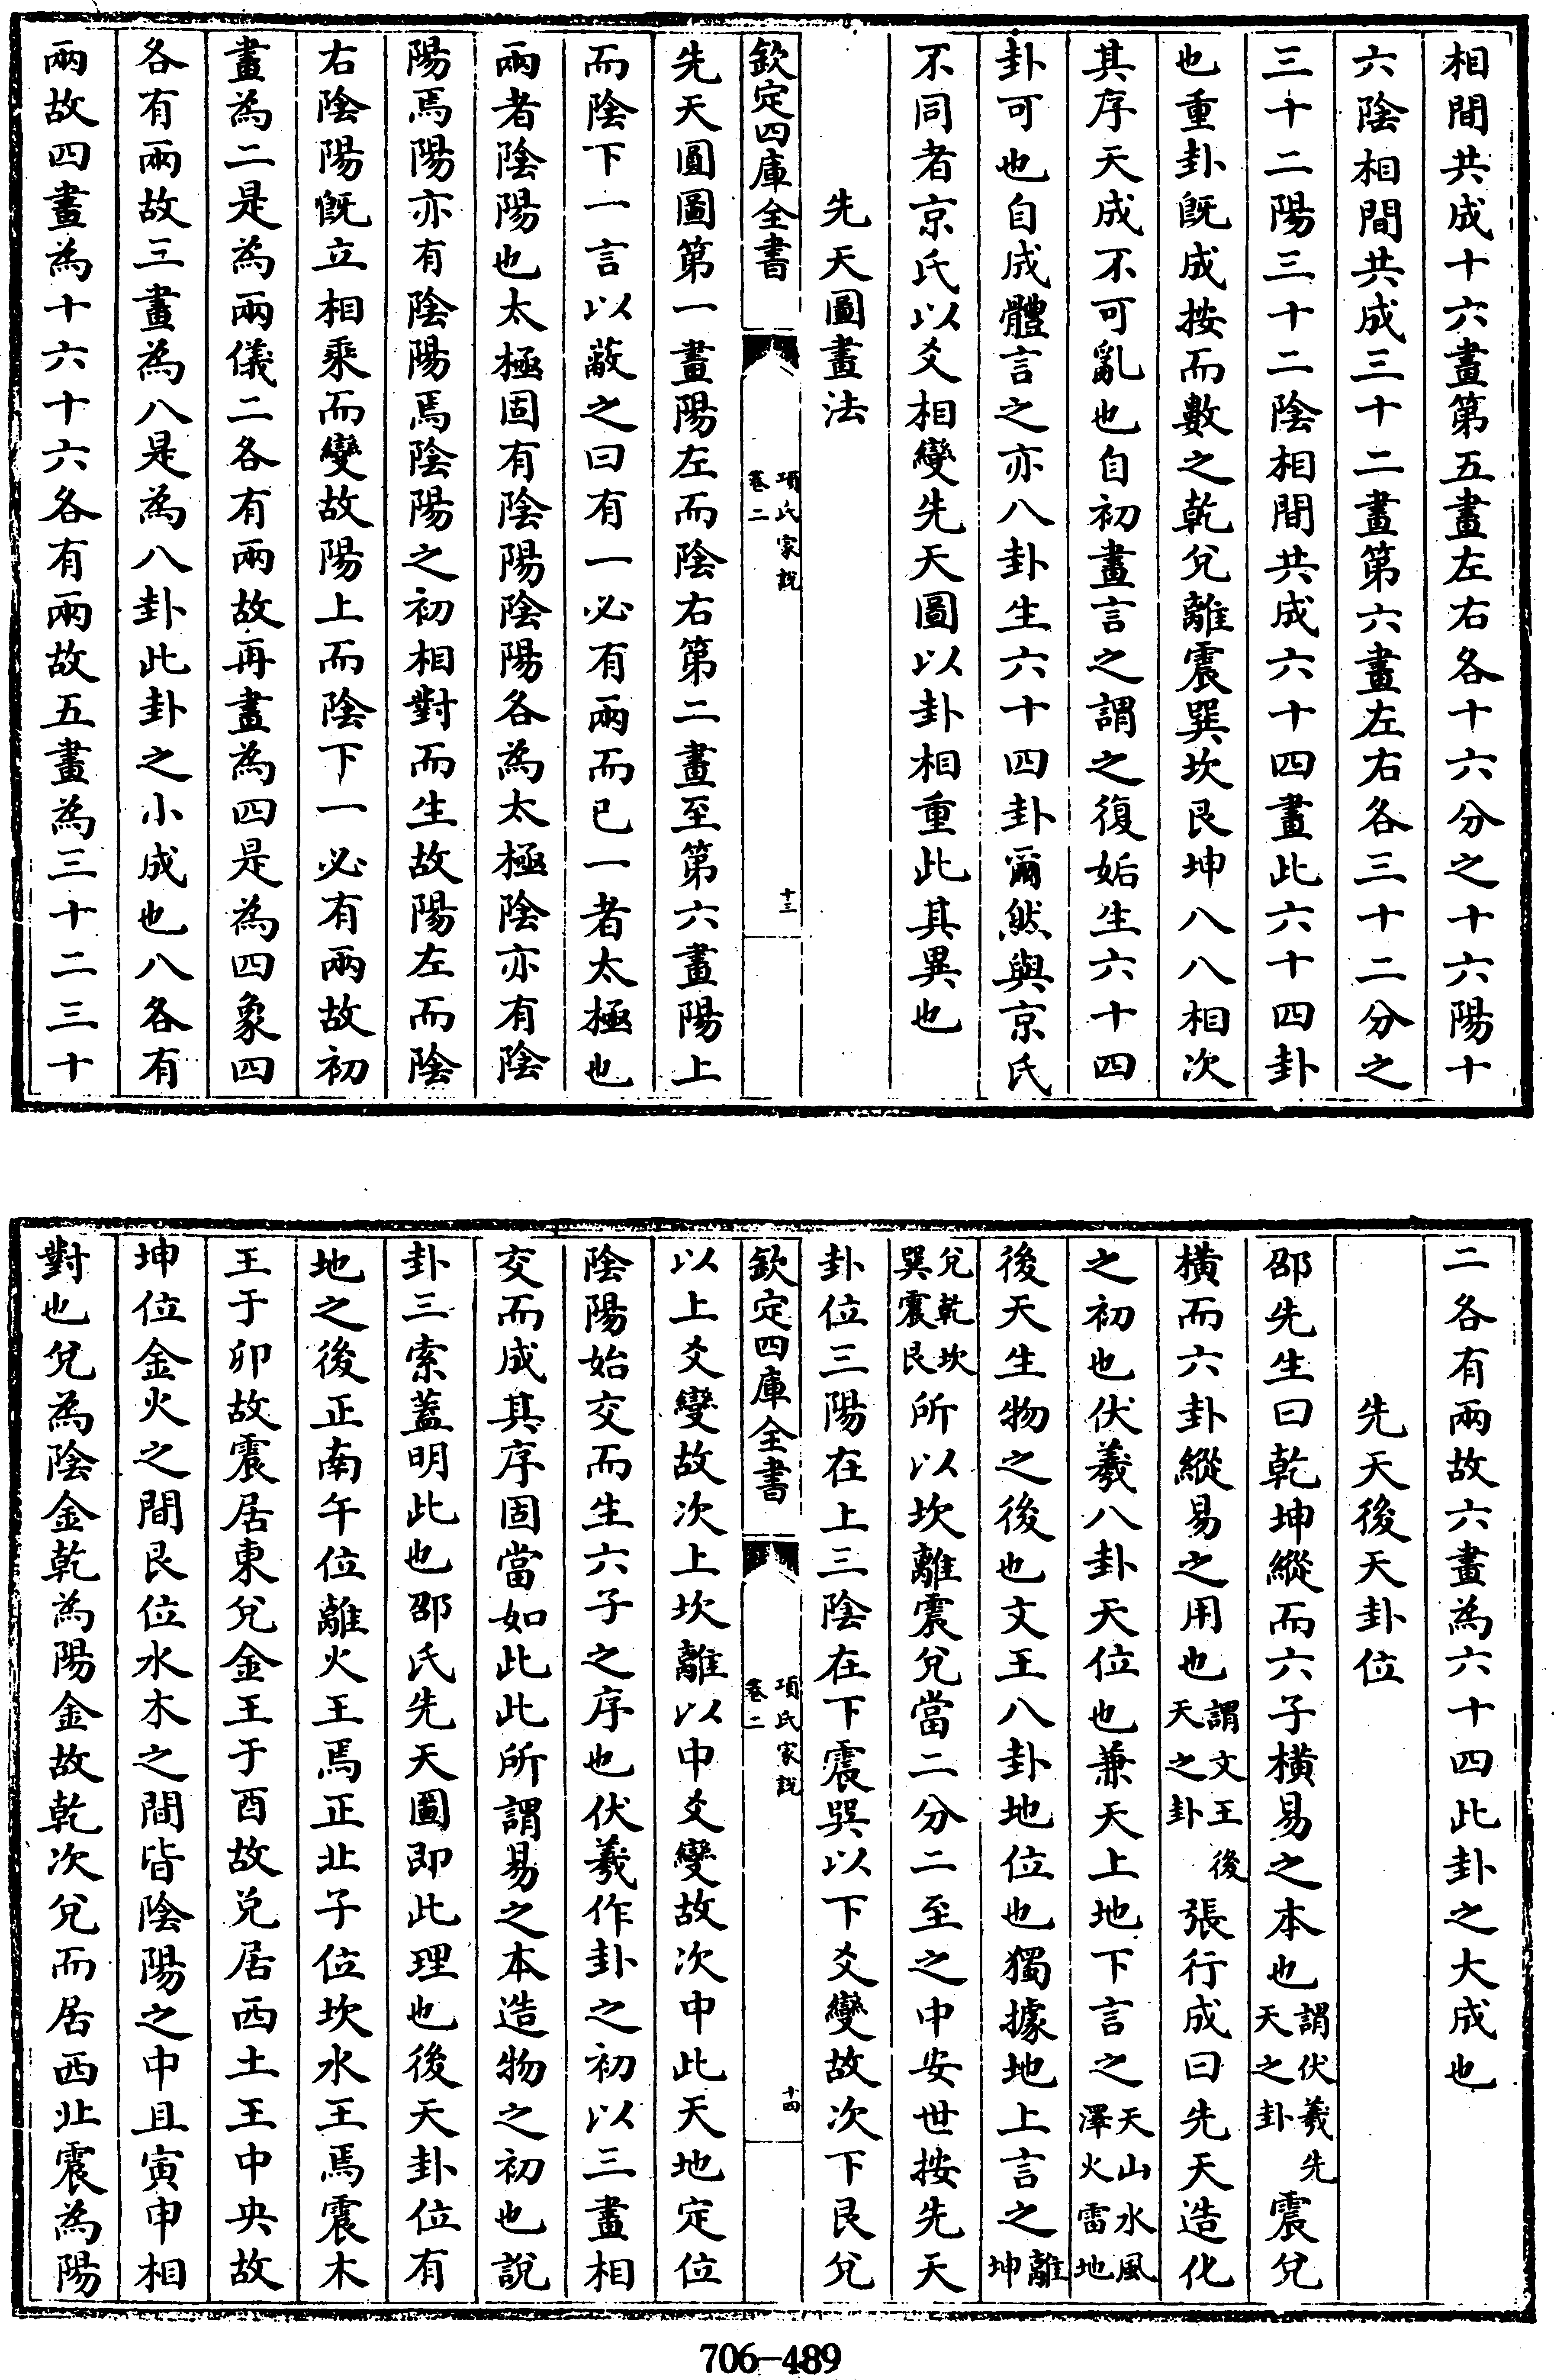 相間共成十六畫第五畫左右各十六分之十六陽十
六陰相間共成三十二畫第六畫左右各三十二分之
三十二陽三十二陰相間共成六十四畫此六十四卦
也重卦既成按而數之乾兌離震巽坎艮坤八八相次
其序天成不可亂也自初畫言之謂之復姤生六十四
卦可也自成體言之亦八卦生六十四卦爾然與京氏
不同者京氏以爻相變先天圖以卦相重此其異也
先天圖畫法
欽定四庫全書
項氏家說
卷二
十三
先天圓圖第一畫陽左而陰右第二畫至第六畫陽上
而陰下一言以蔽之曰有一必有兩而已一者太極也
兩者陰陽也太極固有陰陽陰陽各為太極陰亦有陰
陽焉陽亦有陰陽焉陰陽之初相對而生故陽左而陰
右陰陽既立相乘而變故陽上而陰下一必有兩故初
畫為二是為兩儀二各有兩故再畫為四是為四象四
各有兩故三畫為八是為八卦此卦之小成也八各有
兩故四畫為十六十六各有兩故五畫為三十二三十
二各有兩故六畫為六十四此卦之大成也
先天後天卦位
邵先生曰乾坤縱而六子橫易之本也謂伏羲先天之卦震兌
橫而六卦縱易之用也謂文王後天之卦張行成曰先天造化
之初也伏羲八卦天位也兼天上地下言之天山水風澤火雷地
後天生物之後也文王八卦地位也獨據地上言之離坤
兌乾坎巽震艮所以坎離震兌當二分二至之中安世按先天
卦位三陽在上三陰在下震巽以下爻變故次下艮兌
欽定四庫全書
項氏家說
卷二
十四
以上爻變故次上坎離以中爻變故次中此天地定位
陰陽始交而生六子之序也伏羲作卦之初以三畫相
交而成其序固當如此此所謂易之本造物之初也說
卦三索蓋明此也邵氏先天圖即此理也後天卦位有
地之後正南午位離火王焉正北子位坎水王焉震木
王于卯故震居東兌金王于酉故兌居西土王中央故
坤位金火之間艮位水木之間皆陰陽之中且寅申相
對也兌為陰金乾為陽金故乾次兌而居西北震為陽
706-489